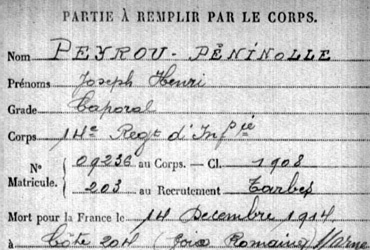 PARTIE À REMPLIR PAR LE CORPS.
Nom PEYROU-PÉNINOLLE
Prénoms Joseph Henri
Grade Caporal
Corps 14e Regt d'Infie
No Matricule. { 09236 au Corps. — Cl. 1908
203 au Recrutement Tarbes
Mort pour la France le 14 Decembre 1914
à Côte 204 (Voie Romaine) Marne